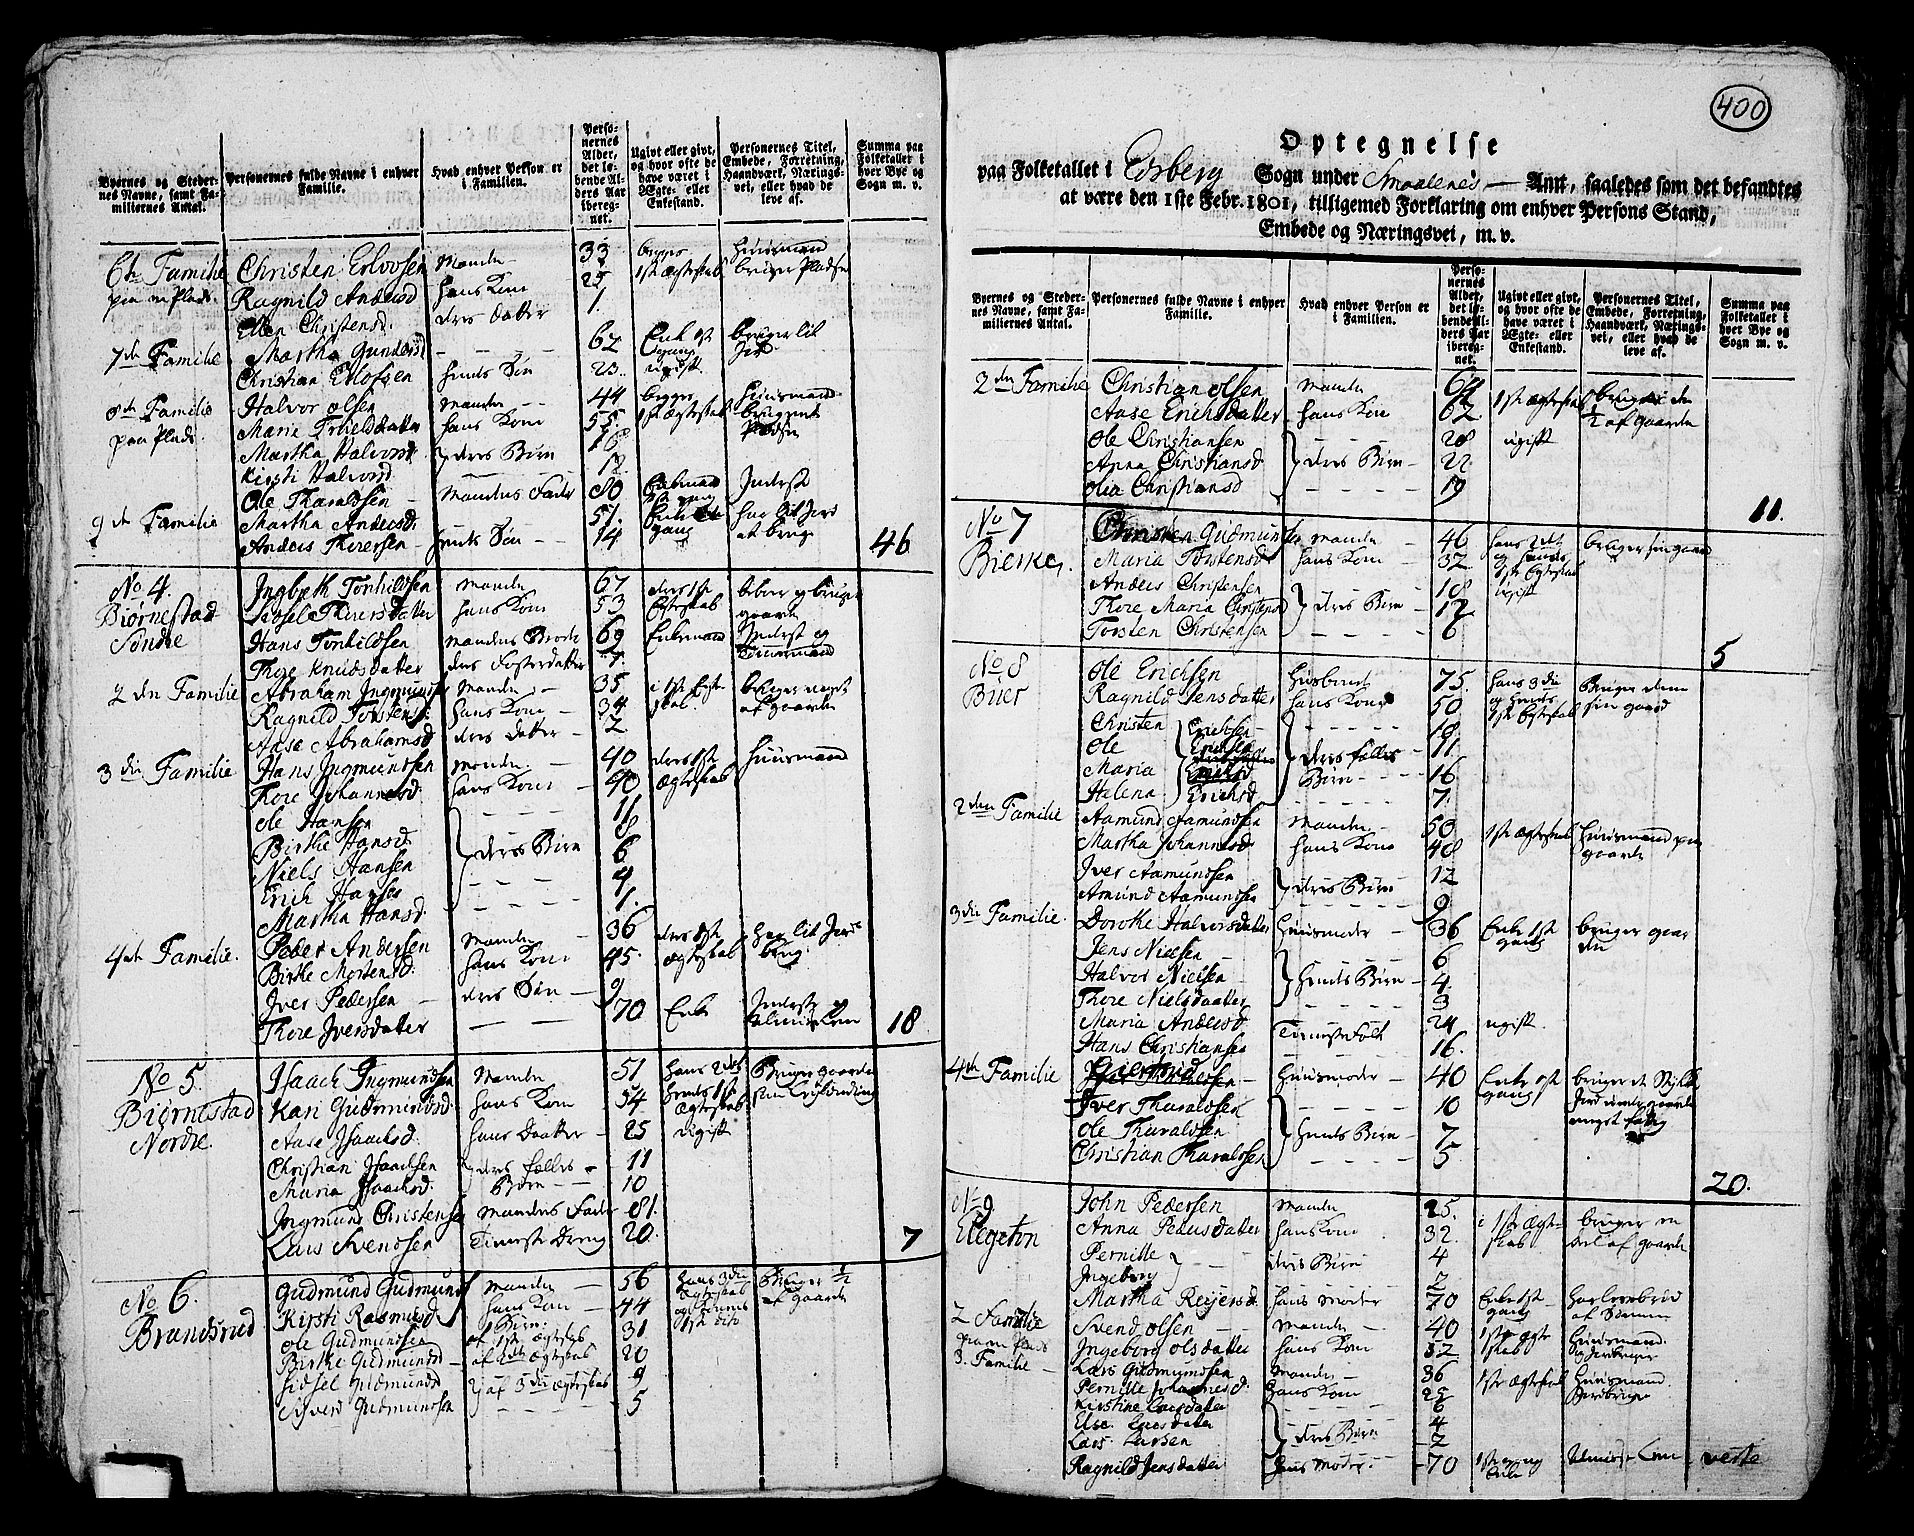 Byernes og Stedernes Navne, samt Familiernes Antal.
Personernes fulde Navne i enhver Familie.
Hvad enhver Person er i Familien.
Personernes Alder, det løbende Alders Aar iberegnet.
Ugivt eller givt, og hvor ofte de have været i Ægte- eller Enkestand.
Personernes Titel, Embede, Forretning, Haandværk, Næringsvei, eller hvad de leve af.
Summa paa Folketallet i hver Bye og Sogn m. v.
6te Familie Christen Erlovsen Mande 33 begge Huusmand
paa en Plads. Ragnild Andersd hans Kone 25 1ste Ægteskab bruger Pladsen
Ellen Christensd. deres Datter 1.
7de Familie Martha Gundersd 62 Enke 1ste gang bruger lit Jord
Christian Erlofsen hendes Søn 23. ugift
8de Familie Halvor Olsen Mande 44 begge Huusmand
paa Plads. Marie hans Kone 55 1ste Ægteskab Pladsen
Martha Halvorsd. deres Børn 16
Kirsti Halvorsd 12
Ole Tharaldsen Mandens Fader 80 Enkemand Inderst
9de Familie Martha Andersd. 51. Enke gang har lit Jord
Anders Ticersen Søn 14 at bruge 46
No 4. Ingbreth Torkildsen Mande 67 deres 1ste beboer og bruger
Biørnestad Sidsel Thoersdatter hans Kone 53 Ægteskab gaarden
Søndre Hans Torkildsen Mandens Broder 69 Enkemand Inderst og
Thore Knudsdatter deres Fosterdatter 7.
2den Familie Abraham Ingmunds Mande 35 i 1ste Ægteskab bruger noget
Ragnild Torstensd. hans Kone 34 af gaarden
Aase Abrahamsd deres Datter 2
3die Familie Hans Ingmundsen Mande 40 deres 1ste Huusmand
Thore Johannesd. hans Kone 40 Ægteskab
Ole Hansen 11
Birthe Hansd 8
Niels Hansen deres Børn 6
Erich Hansen 4
Martha Hansd. 1.
4de Familie. Peder Andersen Mande 36 deres 1ste har lit Jord
Birthe Mortensd. hans Kone 45. Ægteskab brug
Iver Pedersen deres Søn 9
Thore Iversdatter 70 Enke Inderst 18
No 5. Isaach Ingmundsen Mande 51 hans 2det Bruger gaarden
Biørnestad Kari Gudmundsd. hans Kone 54 hendes 1ste
Nordre. Aase Isaachsd. hans Datter 25 Ægteskab ugift
Christian Isaachsen deres fælles 11
Maria Isaachsd. Børn 10
Ingmund Christensen Mandens Fader 81.
Lars Svendsen Tieneste Dreng 20. 7
No 6. Gudmund Gudmunds Mande 56 hans 3die Bruger 1/2
Brandsrud Kirsti Rasmusd hans Kone 44 Ægteskab af gaarden
Ole Gudmundsen Børn: af 1ste Ægteskab 31 og hendes 1ste dito
Birthe Gudmundsd af 2det Ægteskab 20
Sidsel Gudmundsd af 3die Ægteskab 9
Siver Gudmundsen 5
400
Optegnelse
paa Folketallet i Edsberg Sogn under Smaalenes Amt, saaledes som det befandtes
at være den 1ste Febr. 1801, tilligemed Forklaring om enhver Persons Stand,
Embede og Næringsvei, m. v.
Byernes og Stedernes Navne, samt Familiernes Antal.
Personernes fulde Navne i enhver Familie.
Hvad enhver Person er i Familien.
Personernes Alder, det løbende Alders Aar iberegnet.
Ugivt eller givt, og hvor ofte de have været i Ægte- eller Enkestand.
Personernes Titel, Embede, Forretning, Haandværk, Næringsvei, eller hvad de leve af.
Summa paa Folketallet i hver Bye og Sogn m. v.
2den Familie Christian Olsen Mande 64 1ste Ægteskab bruger den
Aase Erichsdatter hans Kone 62 1/2 af gaarden
Ole Christiansen 28 ugift
Anna Christiansd deres Børn 22
Olia Christiansd 19
11.
No 7 Christen Gudmunds Mande 46 hans 2det bruger sin gaard
Bierke. Maria Torstensd hans Kone 32 og hendes 1ste Ægteskab
Anders Christensen 18 ugift
Thore Maria Christensd deres Børn 12
Torsten Christensen 6
5
No 8 Ole Erichsen Husbond 75. hans 3die Bruger denne
Buer Ragnild Jensdatter hans Kone 50 og hendes 1ste Ægteskab sin gaard
Christen Erichsen 18
Ole Erichsen deres fælles 11.
Maria Børn 16
Halena Erichsd. 7.
2den Familie Aamund Aamundsen Mande 50 1ste Ægteskab Huusmand paa
Martha Johannesd. hans Kone 48 gaarden
Iver Aamundsen deres Børn 12
Amund Aamundsen 9
3die Familie. Dorothe Halvorsdatter Huusmoder 36 Enke 1ste gang bruger gaarden
Jens Nielsen 6
Halvor Nielsen hendes Børn 4.
Thore Nielsdaatter 3
Maria Andersd Tieneste Folk 24 ugift.
Hans Christiansen 16.
4de Familie Giertrud Huusmoder 40 Enke 1ste gang bruger et Stykke
Iver Tharaldsen 10 Jord under gaarden
Ole Tharaldsen hendes Børn 7 meget fattig
Christian Tharaldsen 5
20.
No 9 John Pedersen Mande 25. i 1ste Ægteskab bruger en
Elegeton Anna Pedersdatter hans Kone 32. deel af gaarden
Pernille deres Børn 4
Ingeborg 2
Martha Reiersd. hans Moder 70 Enke 1ste gang har levebrød af Sønnen
2 Familie Svend Olsen Mande 40 1ste Ægteskab Huusmand
paa en Plads Ingeborg Olsdatter hans Kone 32 og Jordbruger
3. Familie Lars Gudmundsen Mande 36 1ste Ægteskab Huusmand
Pernille Johannesd. hans Kone 25 Jordbruger
Kirstine Larsdatter 6
Else Larsdatter deres Børn 4
Lars Larsen 2
Ragnild Jensdatter hans Moder 70 Enke verte